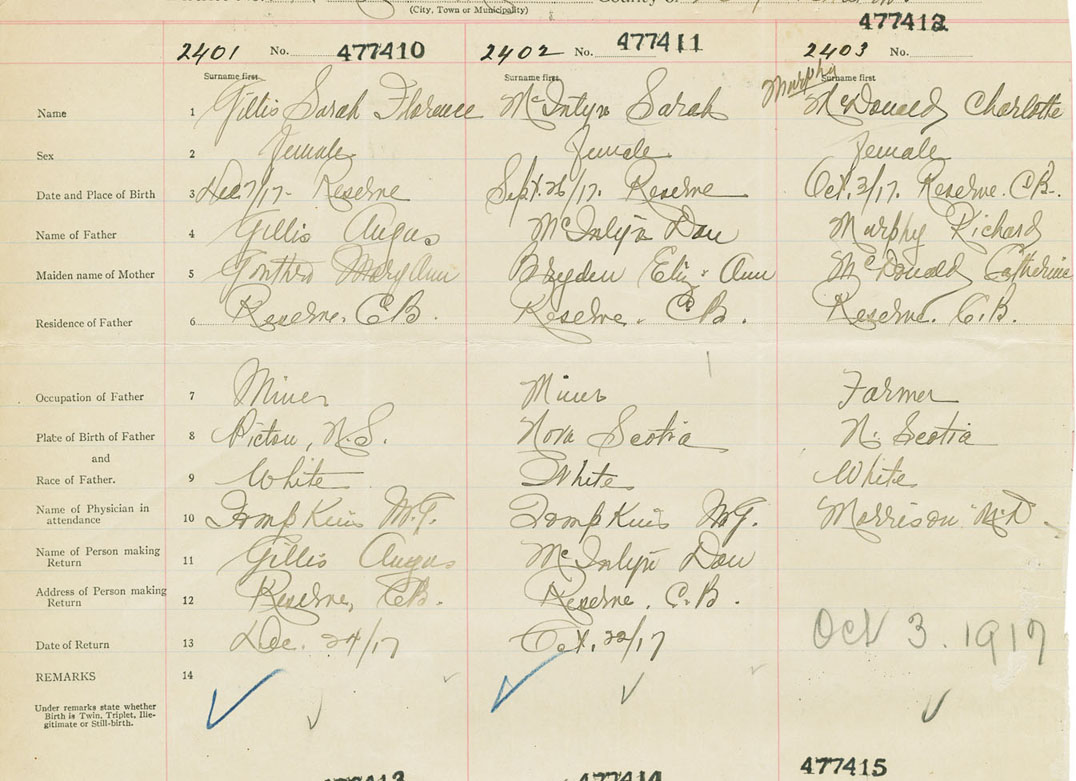 (City, Town or Municipality) County of
2401 No. 477410 2402 No. 477411 2403 No. 477412
Surname first Surname first Murphy Surname first
Name 1 Gillis Sarah Florence McIntyre Sarah McDonald Charlotte
Sex 2 Female Female Female
Date and Place of Birth 3 Dec 7/17- Reserve Sept. 26/17. Reserve Oct. 3/17. Reserve. C.B.
Name of Father 4 Gillis Angus McIntyre Dan Murphy Richard
Maiden name of Mother 5 Mary Ann Bryden Eliz. Ann McDonald Catherine
Residence of Father 6 Reserve. C.B. Reserve. C.B. Reserve. C.B.
Occupation of Father 7 Miner Miner Farmer
Place of Birth of Father 8 Pictou, N.S. Nova Scotia N. Scotia
and
Race of Father. 9 White White White
Name of Physician in
attendance 10 Tompkins M.G. Tompkins M.G. Morrison M.D.
Name of Person making
Return 11 Gillis Angus McIntyre Dan
Address of Person making
Return 12 Reserve, C.B. Reserve. C.B.
Date of Return 13 Dec. 24/17 Oct. 22/17 Oct 3. 1917
REMARKS 14
Under remarks state whether
Birth is Twin, Triplet, Ille-
gitimate or Still-birth.
477413 477414 477415